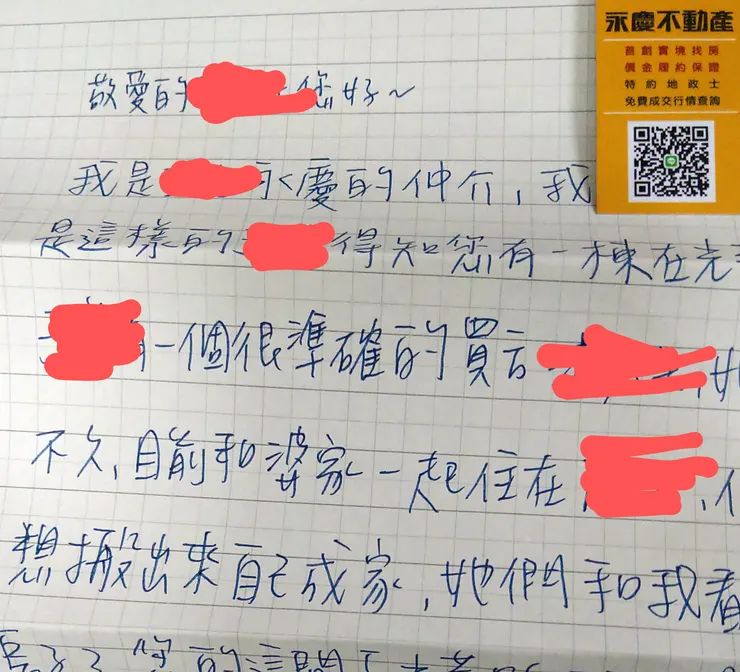 永慶不動產
首創實境找房
價金履約保證
特約地政士
免費成交行情查詢
敬愛的 您好~
我是 永慶的仲介，我
是這樣的 得知您有一棟在光
一個很準確的買方
不久，目前和婆家一起住在
想搬出來自己成家，她們和我看